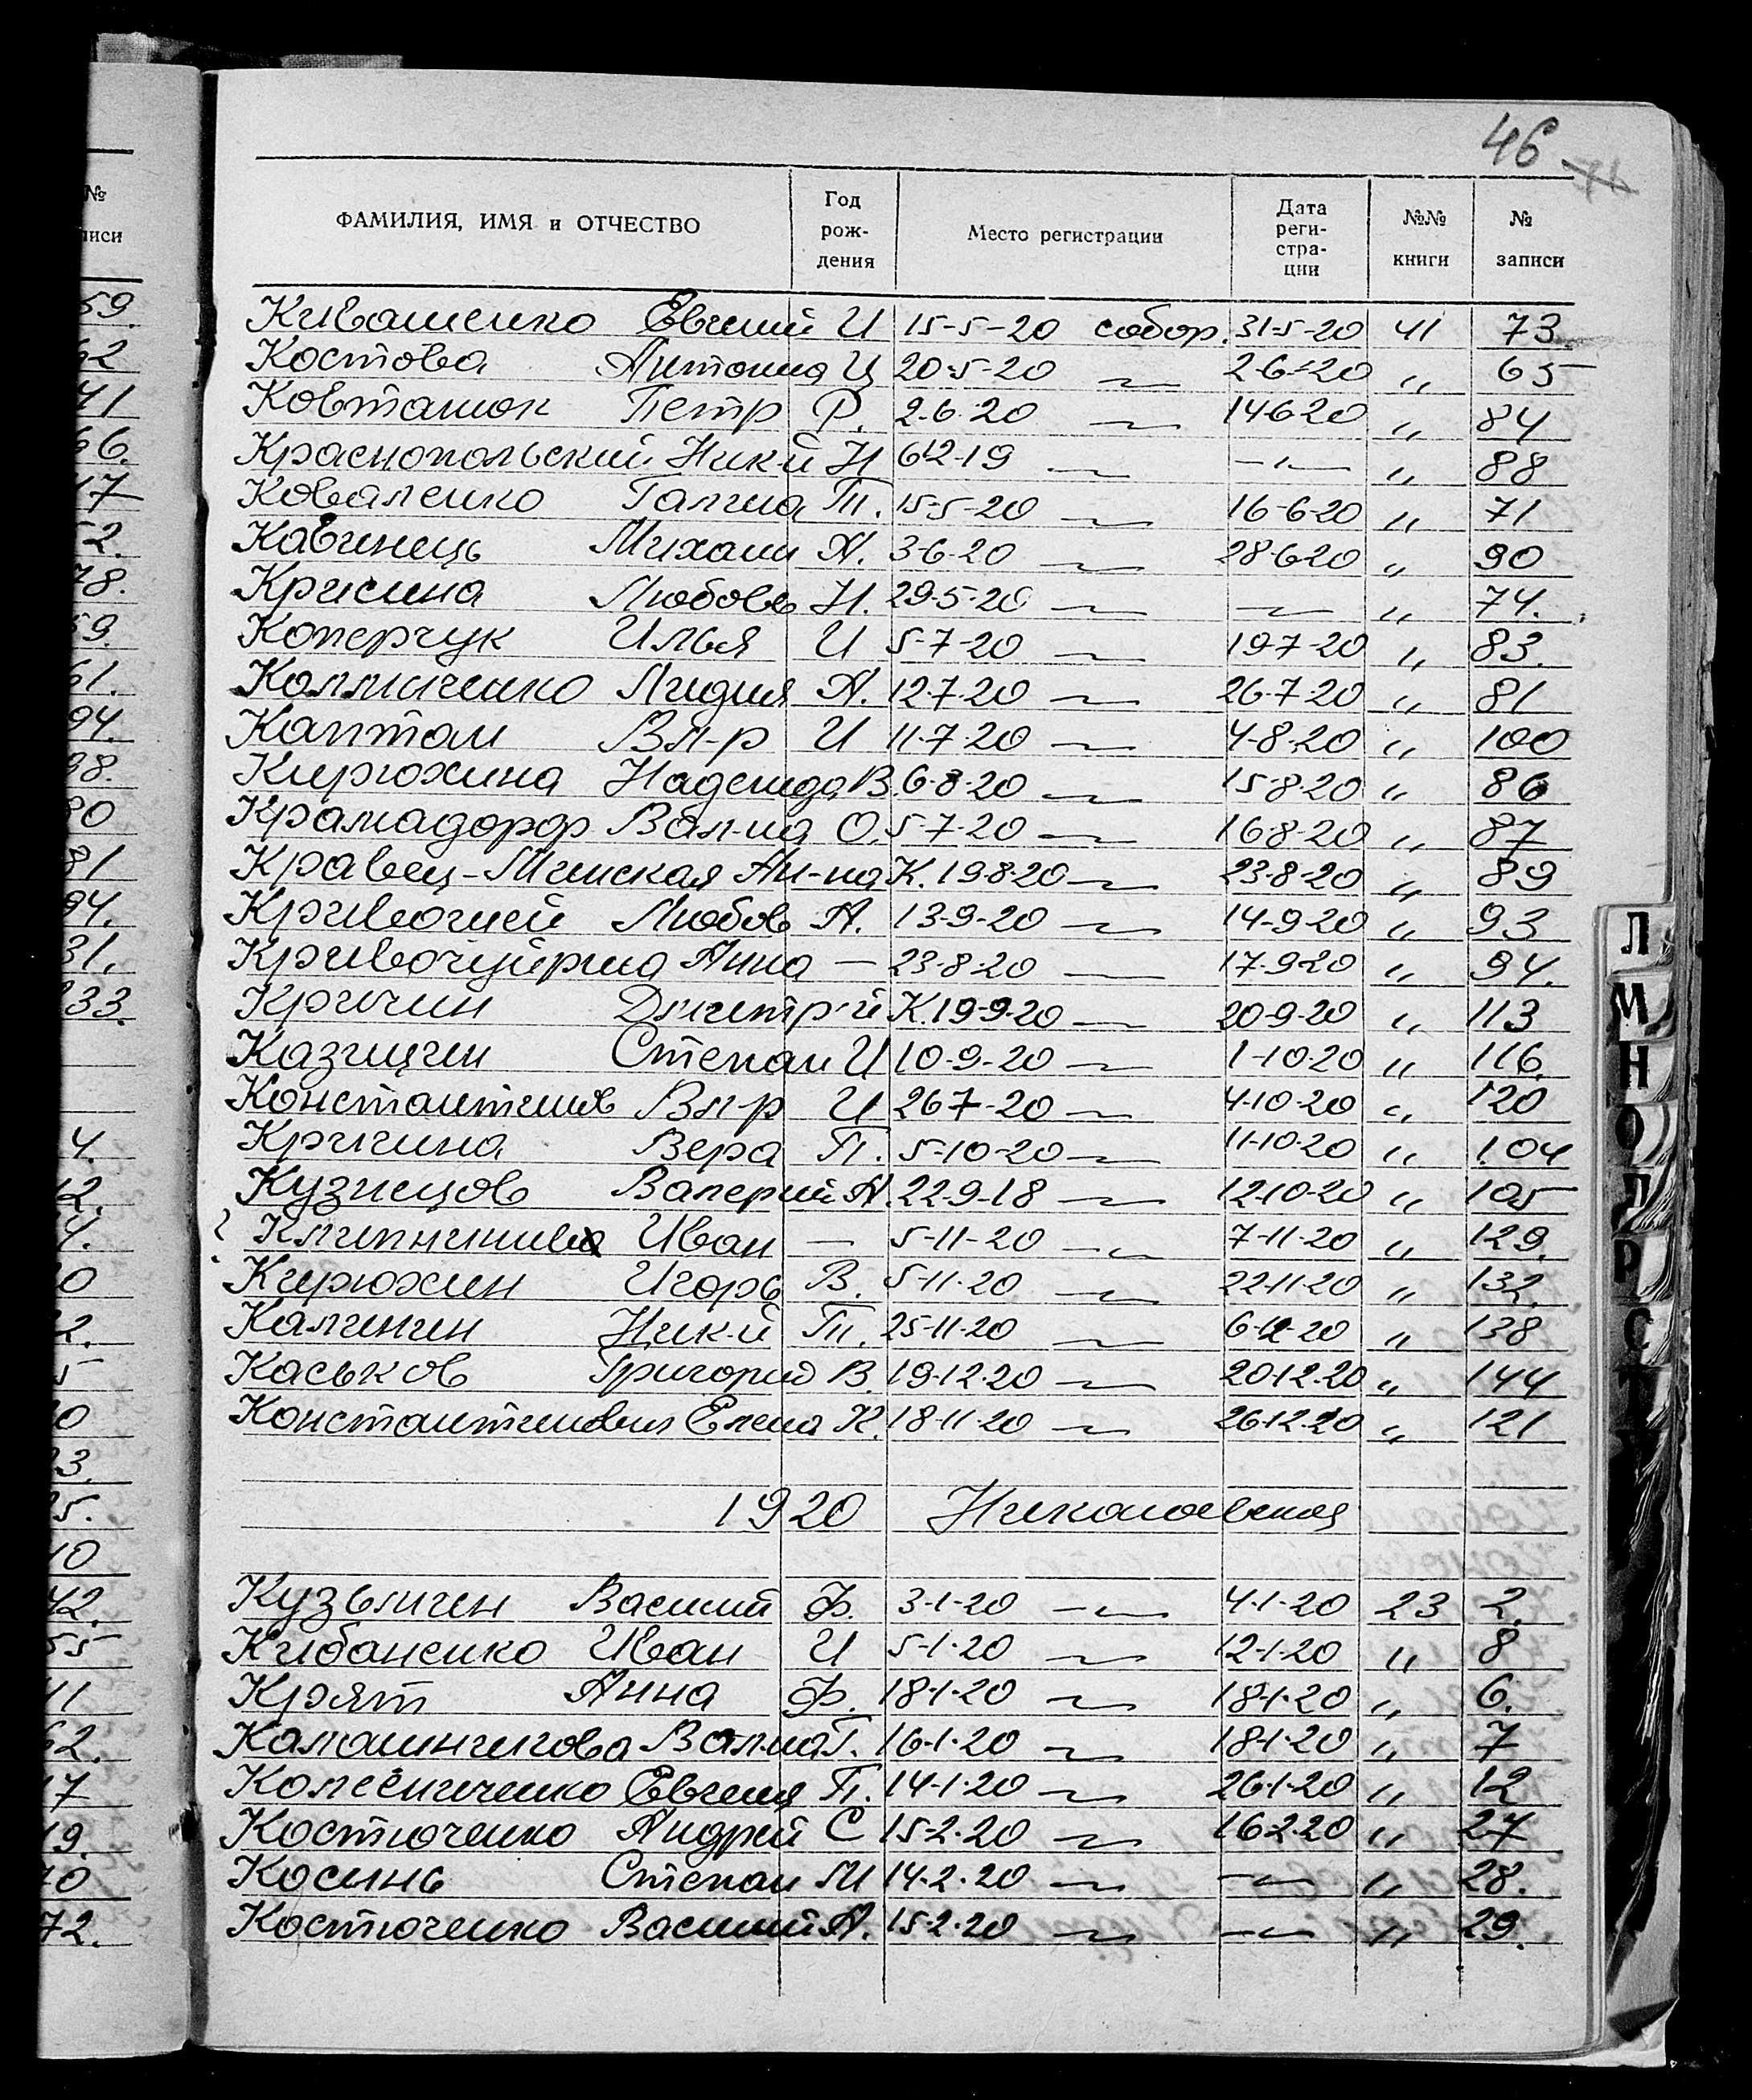 46 71
№
ФАМИЛИЯ, ИМЯ и ОТЧЕСТВО Год рож- дения Место регистрации Дата реги- стра- ции №№ книги № записи
Кивашенко Евгений И 15-5-20 собор. 31-5-20 41 73.
Костова Антонина 20-5-20 〃 2-6-20 〃 65
Ковтанюк Петр Р. 2-6-20 〃 14-6-20 〃 84
Краснопольский Ник-й Н 6-12-19 〃 〃 〃 88
Коваленко Галина Т. 15-5-20 〃 16-6-20 〃 71
Кавинець Михаил А. 3-6-20 〃 28-6-20 〃 90
Крисина Любовь Н. 29-5-20 〃 〃 〃 74.
Коперчук Илья И 5-7-20 〃 19-7-20 〃 83.
Колниченко Лидия А. 12-7-20 〃 26-7-20 〃 81
Каптан Вл-р И 11-7-20 〃 4-8-20 〃 100
Кирюхина Надежда В. 6-8-20 〃 15-8-20 〃 86
Крамадорф Вал-на О. 5-7-20 〃 16-8-20 〃 87
Кравец- Ан-на К. 19-8-20 〃 23-8-20 〃 89
Кривогией Любовь А. 13-9-20 〃 14-9-20 〃 93
Анна — 23-8-20 〃 17-9-20 〃 94.
Кричин Дмитрий К. 19-9-20 〃 20-9-20 〃 113
Казицин Степан И 10-9-20 〃 1-10-20 〃 116.
Константинов Вл-р И 26-7-20 〃 4-10-20 〃 120
Кричина Вера П. 5-10-20 〃 11-10-20 〃 104
Кузнецов Валерий А. 22-9-18 〃 12-10-20 〃 105
Иван — 5-11-20 〃 7-11-20 〃 129.
Кирюхин Игорь В. 5-11-20 〃 22-11-20 〃 132.
Калинин Ник-й Т. 25-11-20 〃 6-12-20 〃 138
Каськов Григорий В. 19-12-20 〃 20-12-20 〃 144
Елена К. 18-11-20 〃 26-12-20 〃 121
1920 Николаевская
Кузьмин Василий Ф. 3-1-20 〃 4-1-20 23 2.
Кибаненко Иван И 5-1-20 〃 12-1-20 〃 8
Крят Анна Ф. 18-1-20 〃 18-1-20 〃 6.
Калашникова Вал-на Г. 16-1-20 〃 18-1-20 〃 7
Колесниченко Евгения П. 14-1-20 〃 26-1-20 〃 12
Костюченко Андрей С 15-2-20 〃 16-2-20 〃 27
Косинь Степан М 14-2-20 〃 〃 〃 28.
Костюченко Василий А. 15-2-20 〃 〃 〃 29.
Л
М
Н
О
П
Р
С
Т